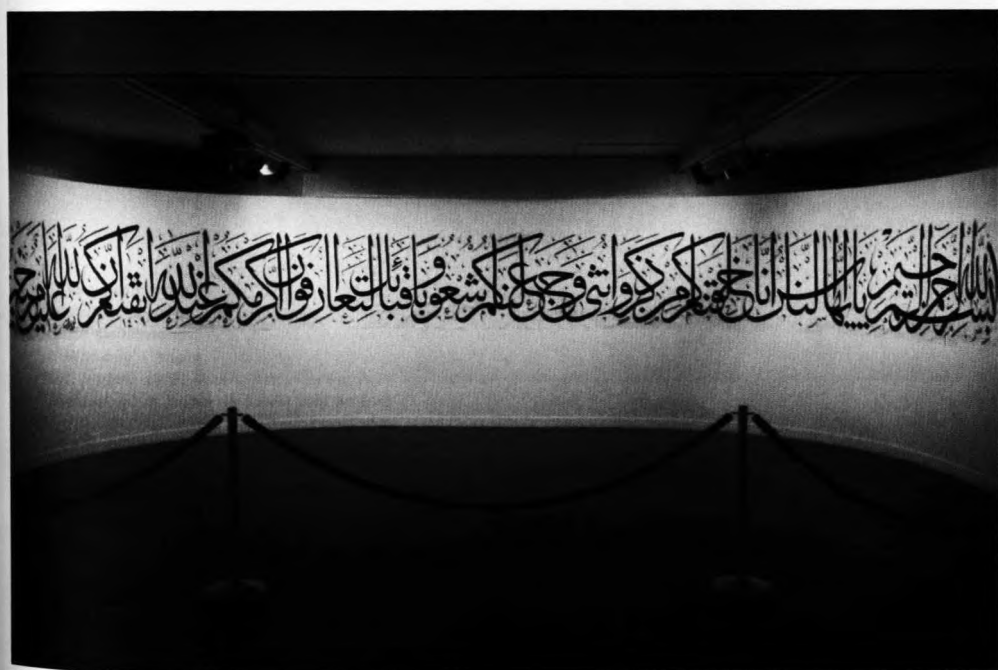 بسم الله الرحمن الرحيم يايها الناس انا خلقنكم من ذكر وانثى وجعلنكم شعوبا وقبائل لتعارفوا ان اكرمكم عند الله اتقىكم ان الله عليم خبير